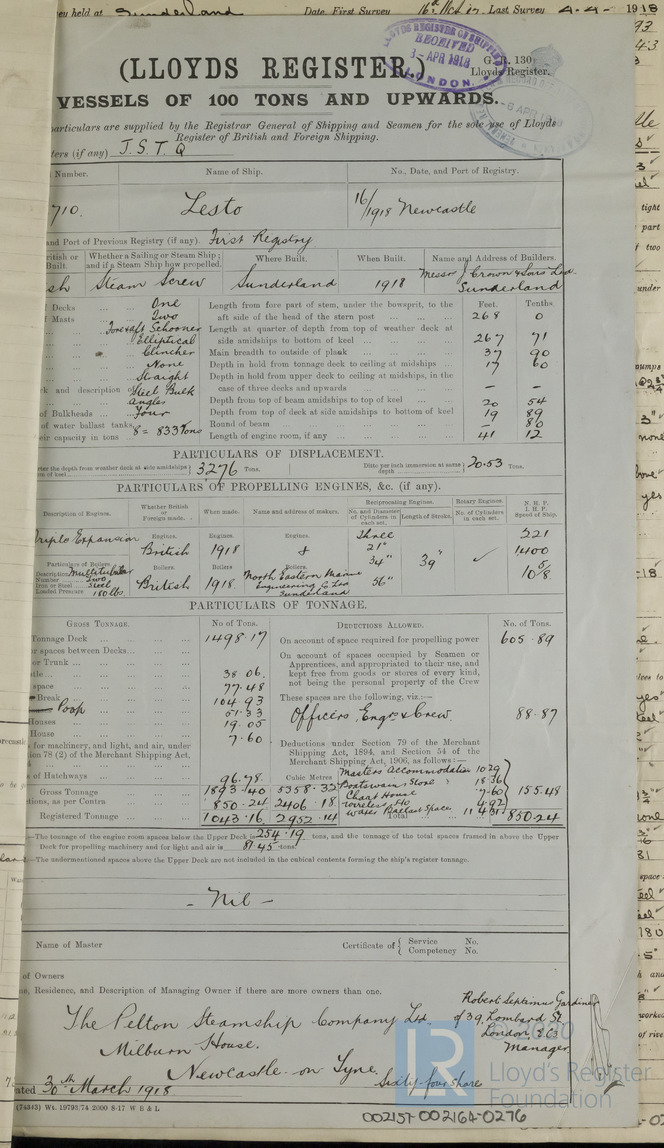 held at Sunderland Date, First Survey 16th Last Survey 4-4- 1918
LLOYDS REGISTER OF SHIPPING
RECEIVED
3-APR 1918
LONDON.
6 APR 1918
(LLOYDS REGISTER.) G.R. 130
Lloyds Register.
VESSELS OF 100 TONS AND UPWARDS.
particulars are supplied by the Registrar General of Shipping and Seamen for the sole use of Lloyds
Register of British and Foreign Shipping.
ters (if any) J.S.T.Q
Number. Name of Ship. No., Date, and Port of Registry.
710. Lesto 16/1918 Newcastle
and Port of Previous Registry (if any). First Registry
British or Built. Whether a Sailing or Steam Ship; and if a Steam Ship how propelled. Where Built. When Built. Name and Address of Builders.
sh Steam Screw Sunderland 1918 Messrs J Crown & Sons Ltd
Sunderland
Decks One Length from fore part of stem, under the bowsprit, to the Feet. Tenths.
Masts Two aft side of the head of the stern post 268 0
Fore & aft Schooner Length at quarter of depth from top of weather deck at
Elliptical side amidships to bottom of keel 267 71
Clincher Main breadth to outside of plank 37 90
None Depth in hold from tonnage deck to ceiling at midships 17 60
Straight Depth in hold from upper deck to ceiling at midships, in the
ck and description of Steel Bulk case of three decks and upwards - -
angles Depth from top of beam amidships to top of keel 20 54
of Bulkheads Four Depth from top of deck at side amidships to bottom of keel 19 89
of water ballast tanks, Round of beam - 80
eir capacity in tons 8 = 833 Tons Length of engine room, if any 41 12
PARTICULARS OF DISPLACEMENT.
the depth from weather deck at side amidships of keel 3276 Tons. Ditto per inch immersion at same depth 20.53 Tons.
PARTICULARS OF PROPELLING ENGINES, &c. (if any).
Description of Engines. Whether British or Foreign made. When made. Name and address of makers. Reciprocating Engines. Rotary Engines N. H. P.
No. and Diameter of Cylinders in each set. Length of Stroke. No. of Cylinders in each set. I. H. P.
Speed of Ship.
Triple Expansion Engines. Engines. Engines. Three 221
British 1918 & 21" 1400
Particulars of Boilers. Boilers. Boilers Boilers. 34" 39" ✓ 10 5/8
Description Multitubular North Eastern Marine
Number Two British 1918 Engineering Co Ltd 56"
Iron or Steel Steel Sunderland
Loaded Pressure 180 lbs
PARTICULARS OF TONNAGE.
GROSS TONNAGE. No of Tons. DEDUCTIONS ALLOWED. No. of Tons.
Tonnage Deck 1498.17 On account of space required for propelling power 605.89
or spaces between Decks On account of spaces occupied by Seamen or
or Trunk Apprentices, and appropriated to their use, and
tle 38.06. kept free from goods or stores of every kind,
space 77.48 not being the personal property of the Crew
Break 104.93 These spaces are the following, viz:—
Poop 51.33 Officers, Engrs & Crew. 88.87
Houses 19.05
House 7.60 Deductions under Section 79 of the Merchant
for machinery, and light, and air, under Shipping Act, 1894, and Section 54 of the
ion 78 (2) of the Merchant Shipping Act, Merchant Shipping Act, 1906, as follows:—
Masters Accommodation 10.29
of Hatchways 96.78 Cubic Metres Boatswains Store 18.36
Gross Tonnage 1893.40 5358.32 Chart House 7.60 155.48
tions, as per Contra 850.24 2406.18 Wireless Ho 4.92
Registered Tonnage 1043.16 2952.14 Water Ballast Space 114.31 Total 850.24
—The tonnage of the engine room spaces below the Upper Deck is 254.19 tons, and the tonnage of the total spaces framed in above the Upper
Deck for propelling machinery and for light and air is 81.45 tons.
—The undermentioned spaces above the Upper Deck are not included in the cubical contents forming the ship's register tonnage.
- Nil -
Name of Master Certificate of { Service No.
Competency No.
of Owners
e, Residence, and Description of Managing Owner if there are more owners than one.
The Pelton Steamship Company Ltd. Robert Septimus Gardiner
Milburn House. of 39, Lombard St
London, EC3
Newcastle on Tyne. Manager
Sixty-four share
ated 30th March 1918
(74343) Wt. 19793/74 2000 8-17 W B & L
© 2020
LR Lloyd's Register
Foundation
002157-002164-0276